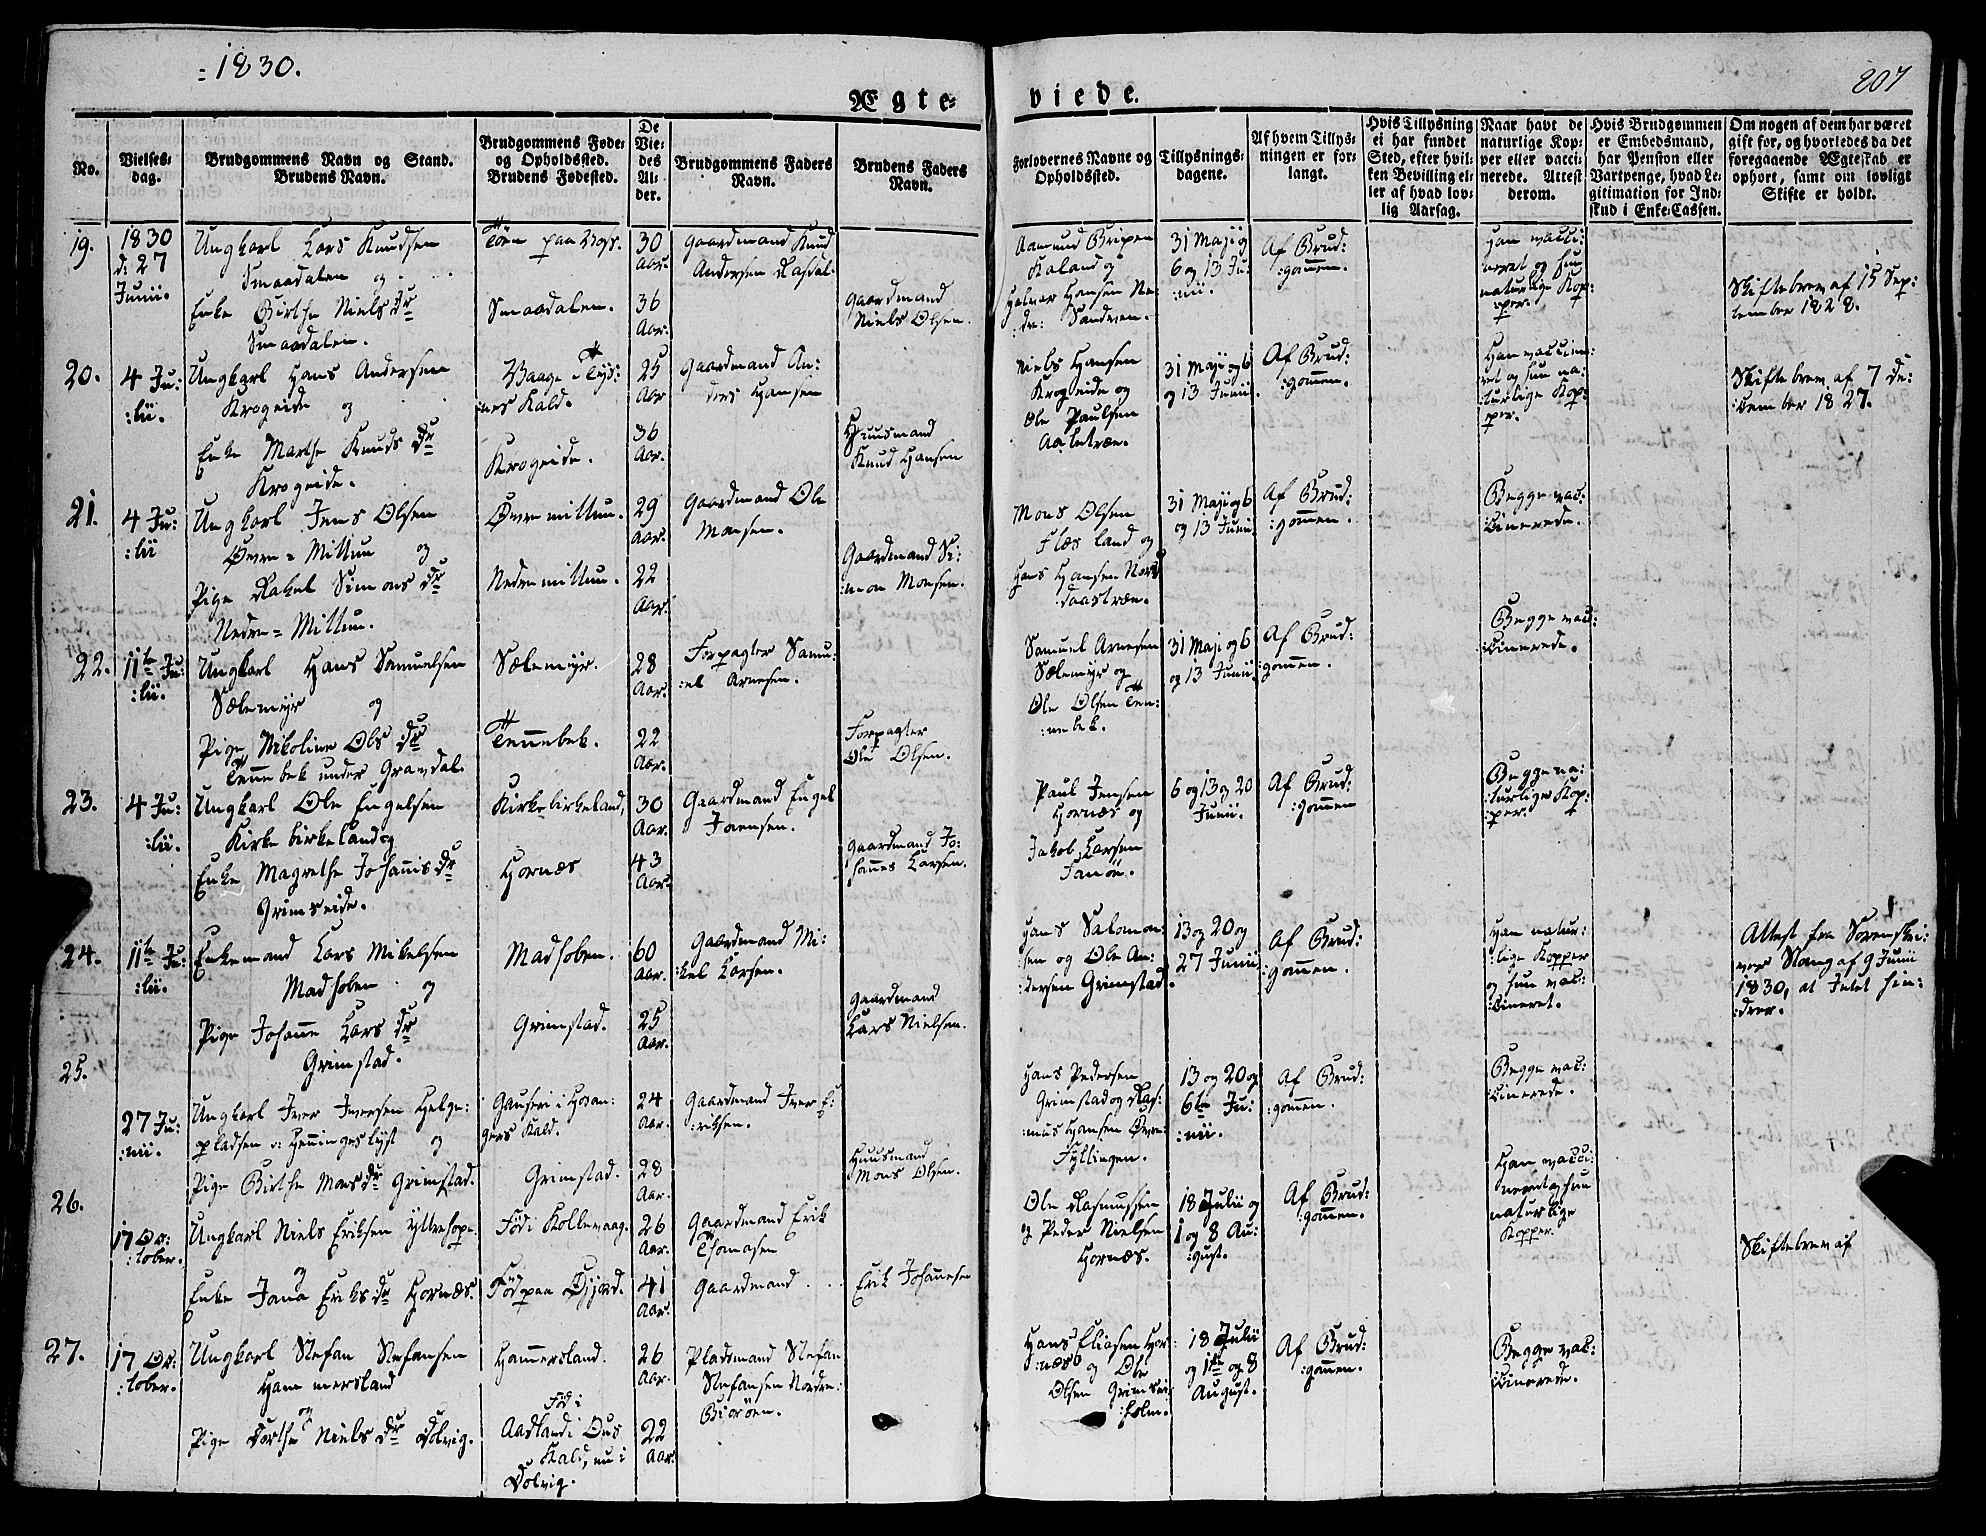 :1830.
207
Ægte=
viede.
No.
Vielses=
dag.
Brudgommens Navn og Stand.
Brudens Navn.
Brudgommens Føde=
og Opholdssted.
Brudens Fødested.
De
Vie=
des
Al=
der.
Brudgommens Faders
Navn.
Brudens Faders
Navn.
Forlovernes Navne og
Opholdssted.
Tillysnings=
dagene.
Af hvem Tillys=
ningen er for=
langt.
Hvis Tillysning
ei har fundet
Sted, efter hvil=
ken Bevilling el=
ler af hvad lov=
lig Aarsag.
Naar havt de
naturlige Kop=
per eller vacci=
nerede. Attest
derom.
Hvis Brudgommen
er Embedsmand,
har Pension eller
Vartpenge, hvad Le=
gitimation for Ind=
skud i Enke=Cassen.
Om nogen af dem har været
gift før, og hvorledes da det
foregaaende Ægteskab er
ophørt, samt om lovligt
Skifte er holdt.
19.
1830
d: 27
Junii.
Ungkarl Lars Knudsen
Smaadalen og
Enke Birthe Niels Dr
Smaadalen.
paa Vos.
Smaadalen.
30
Aar.
36
Aar.
Gaardmand Knud
Andersen
Gaardmand
Niels Olsen.
Aamund
Kaland og
Halvor Hansen Ne=
dr: Sandven.
31 Maji og
6 og 13 Ju:
:nii.
Af Brud:
:gommen.
Han vacci:
neret og hun
naturlige Kop:
:per.
Skiftebrev af 15 Sep:
tember 1828.
20.
4 Ju:
:lii.
Ungkarl Hans Andersen
Krogeide og
Enke Marthe Knuds Dr
Krogeide.
Vaage
:nes Kald.
Krogeide.
25
Aar
36
Aar.
Gaardmand An:
ders Hansen
Huusmand
Knud Hansen
Niels Hansen
Krogeide og
Ole Paulsen
Aaletræe.
31 Maji og 6
og 13 Junii.
Af Brud:
:gommen.
Han vaccine:
ret og hun na:
:turlige Kop:
per.
Skiftebrev af 7 De:
:cember 1827.
21.
4 Ju:
:lii
Ungkarl Jens Olsen
Øvre=Mittun og
Pige Rakel Simons Dr
Nedre=Mittun.
Øvremittun.
Nedremittun.
29
Aar.
22
Aar.
Gaardmand Ole
Monsen.
Gaardmand Si:
:mon Monsen.
Mons Olsen
Flæsland og
Hans Hansen Nord
:daastræe.
31 Maji og 6
og 13 Junii.
Af Brud:
:gommen.
Begge vac:
:cinerede.
22.
11te Ju:
:lii.
Ungkarl Hans Samuelsen
Sælemyr og
Pige Nikoline Ols Dr
Tennebek under Gravdal.
Sælemyr.
Tennebek.
28
Aar.
22
Aar.
Forpagter Samu:
:el Arnesen.
Forpagter
Ole Olsen.
Samuel Arnesen
Sælemyr og
Ole Olsen Ten:
:nebek.
31 Maji og 6
og 13 Junii
Af Brud:
gommen.
Begge vac:
:cinerede.
23.
4 Ju:
:lii.
Ungkarl Ole Engelsen
Kirkebirkeland og
Enke Magrethe Johannis Dr
Grimseide.
Kirkebirkeland,
Hornæs
30
Aar.
43
Aar.
Gaardmand Engel
Joensen.
Gaardmand Jo:
hannes Larsen.
Paul Jensen
Hornæs og
Jakob Larsen
Fanøe.
6 og 13 og 20
Junii.
Af Brud:
:gommen
Begge na:
:turlige Kop:
:per.
24.
11te Ju:
:lii.
Enkemand Lars Mikelsen
Madhoben og
Pige Johanne Lars Dr
Grimstad.
Madhoben.
Grimstad.
60
Aar.
25
Aar.
Gaardmand Mi:
:kel Larsen.
Gaardmand
Lars Nielsen.
Hans Salomon:
:sen og Ole An:
:dersen Grimstad.
13 og 20 og
27 Junii
Af Brud:
:gommen.
Han natur:
:lige Kopper
og hun vac:
:cineret.
Attest fra Sorenskri:
ver Stang af 9 Junii
1830, at Intet hin:
:drer.
25.
27 Ju:
:nii.
Ungkarl Iver Iversen Helge:
pladsen v: Henningeslyst og
Pige Birthe Mons Dr Grimstad.
i Hosan:
gers Kald.
Grimstad.
24
Aar.
28
Aar.
Gaardmand Iver E:
:riksen.
Huusmand
Mons Olsen.
Hans Pedersen
Grimstad og Ras:
:mus Hansen Øvre
Fyllingen.
13 og 20 og
6te Ju:
:nii.
Af Brud:
:gommen.
Begge vac:
:cinerede.
26.
17 Oc:
:tober.
Ungkarl Niels Eriksen Yttrehope
og
Enke Jana Eriks Dr Hornæs.
Fød i Kollevaag.
Fød paa
26
Aar.
41
Aar.
Gaardmand Erik
Thomasen
Gaardmand . . .
Erik Johannesen
Ole Rasmussen
og Peder Nielsen
Hornæs.
18 Julii og
1 og 8 Au:
:gust.
Af Brud:
:gommen.
Han vacci:
neret og hun
naturlige
Kopper.
Skiftebrev af
27.
17 Oc:
:tober.
Ungkarl Stefan Stefansen
Hammersland
og
Pige Dorthe Niels Dr Dolvig.
Hammersland.
Fød i
Aadland i Ous
Kald, nu i
Dolvig.
26
Aar.
22
Aar.
Pladsmand Stefan
Stefansen Nedre:
Biorøen.
Hans Eliasen Hor:
:næs og Ole
Olsen Grimsei:
:holm.
18 Julii
og 1te og 8
August.
Af Brud:
:gommen.
Begge vac:
:cinerede.